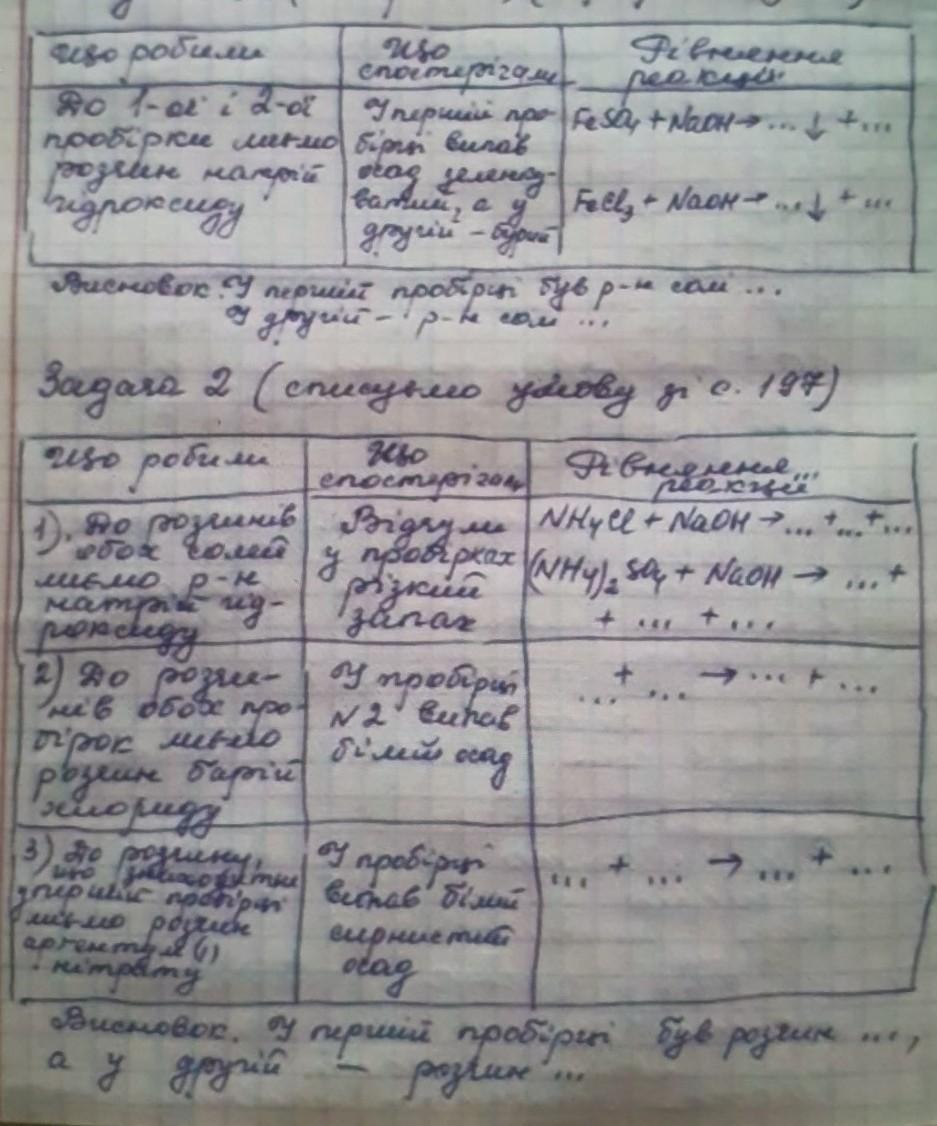 Що робили
Що
спостерігали
Рівняння
реакції
До 1-ої і 2-ої
пробірки льємо
розчин натрій
гідроксиду
У першій про-
бірці випав
осад зеленку-
ватий, а у
другій – бурий
FeSO₄ + NaOH → ...↓ + ...
FeCl₃ + NaOH → ...↓ + ...
Висновок. У першій пробірці був р-н солі ...
У другій – р-н солі ...
Задача 2 (списуємо умову зі с. 197)
Що робили
Що
спостерігали
Рівняння...
реакції
1). До розчинів
обох солей
льємо р-н
натрій гід-
роксиду
Відчули
у пробірках
різкий
запах
NH₄Cl + NaOH → ... + ... + ...
(NH₄)₂SO₄ + NaOH → ... +
+ ... + ...
2) До розчи-
нів обох про-
бірок льємо
розчин барій
хлориду
У пробірці
N2 випав
білий осад
... + ... → ... + ...
3) До розчину,
що знаходиться
у першій пробірці
льємо розчин
аргентум (I)
нітрату
У пробірці
випав білий
сирнистий
осад
... + ... → ... + ...
Висновок. У першій пробірці був розчин ...,
а у другій – розчин ...